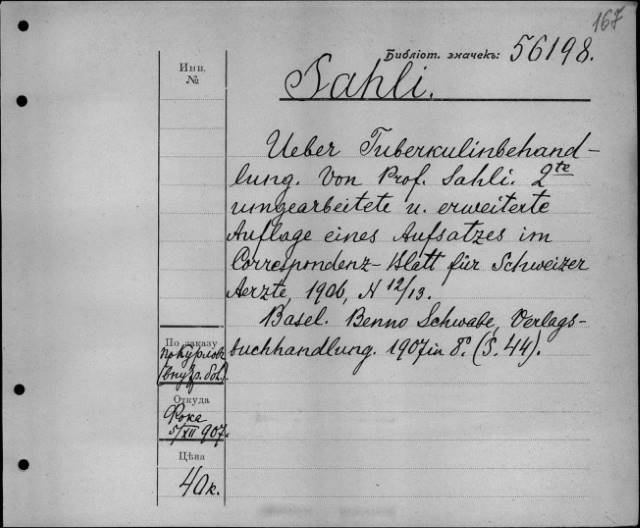 167
Библіот. значекъ: 56198.
Инв.
№
Sahli.
Ueber Tuberkulinbehand-
lung. Von Prof. Sahli. 2te
umgearbeitete u. erweiterte
Auflage eines Aufsatzes im
Correspondenz-Blatt für Schweizer
Aerzte, 1906, N 12/13.
Basel. Benno Schwabe, Verlags-
buchhandlung. 1907 in 8° (S. 44).
По заказу
Откуда
5/XII 907.
Цѣна
40к.